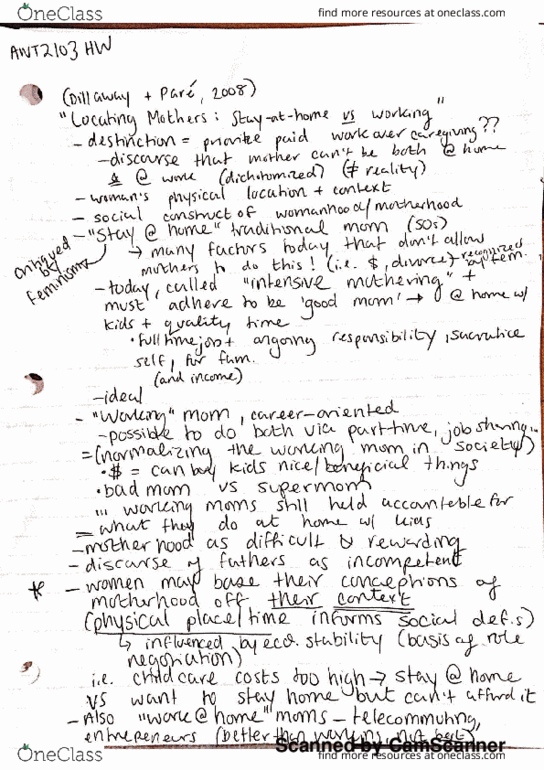 OneClass find more resources at oneclass.com
ANT2103 HW
(Dillaway + Paré, 2008)
"Locating Mothers: Stay-at-home vs working"
- destinction = priorite paid work over caregiving??
- discourse that mother can't be both @ home
& @ work (dichotomized) (≠ reality)
- woman's physical location + context
- social construct of womanhood/motherhood
- "Stay @ home" traditional mom (50s)
critiqued by feminism
→ many factors today that don't allow
mothers to do this! (i.e. $, divorce) → recognized by fem.
- today, called "intensive mothering" +
must adhere to be 'good mom' → @ home w/
kids + quality time
• full time job + ongoing responsibility, sacratice
self, for fam.
(and income)
- ideal
- "Working" mom, career-oriented
- possible to do both via parttime, job sharing...
= (normalizing the working mom in society)
• $ = can buy kids nice/beneficial things
• bad mom vs supermom
... working moms still held accountable for
= what they do at home w/ kids
- motherhood as difficult & rewarding
- discourse of fathers as incompetent
* - women may base their conceptions of
motherhood off their context
(physical place/time informs social def.s)
↳ influenced by eco. stability (basis of role
negotiation)
i.e. childcare costs too high → stay @ home
vs want to stay home but can't afford it
- Also "work @ home" moms - telecommuting,
entrepeneurs (better than working, not best)
Scanned by CamScanner
OneClass find more resources at oneclass.com